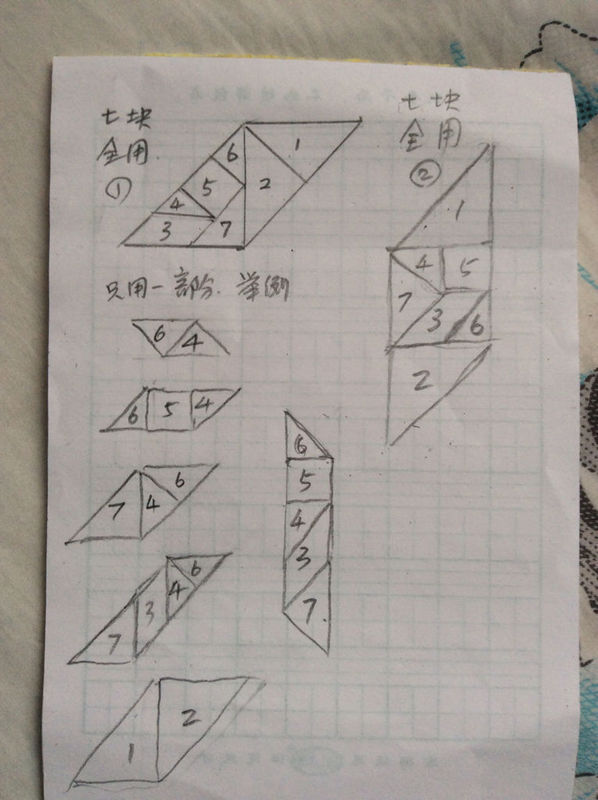 七块
全用.
①
1
6
2
5
4
3
7
七块
全用
②
1
4
5
7
3
6
2
只用一部分.举例
6
4
6
5
4
7
4
6
7
3
4
6
1
2
6
5
4
3
7.